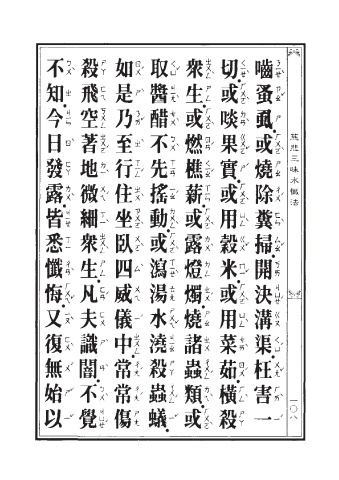 慈悲三昧水懺法
一〇八
嚙蚤虱。或燒除糞掃。開決溝渠。枉害一
切。或啖果實。或用穀米。或用菜茹。橫殺
衆生。或燃樵薪。或露燈燭。燒諸蟲類。或
取醬醋不先搖動。或瀉湯水澆殺蟲蟻。
如是乃至行住坐臥四威儀中。常常傷
殺飛空著地微細衆生。凡夫識闇。不覺
不知。今日發露。皆悉懺悔。又復無始以